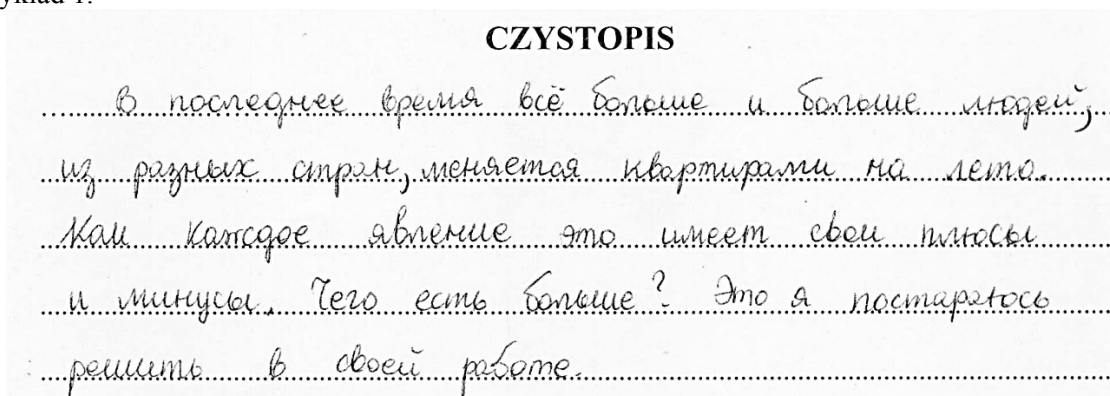 ykład 1.
CZYSTOPIS
В последнее время всё больше и больше людей,
из разных стран, меняется квартирами на лето.
Как каждое явление это имеет свои плюсы
и минусы. Чего есть больше? Это я постараюсь
решить в своей работе.